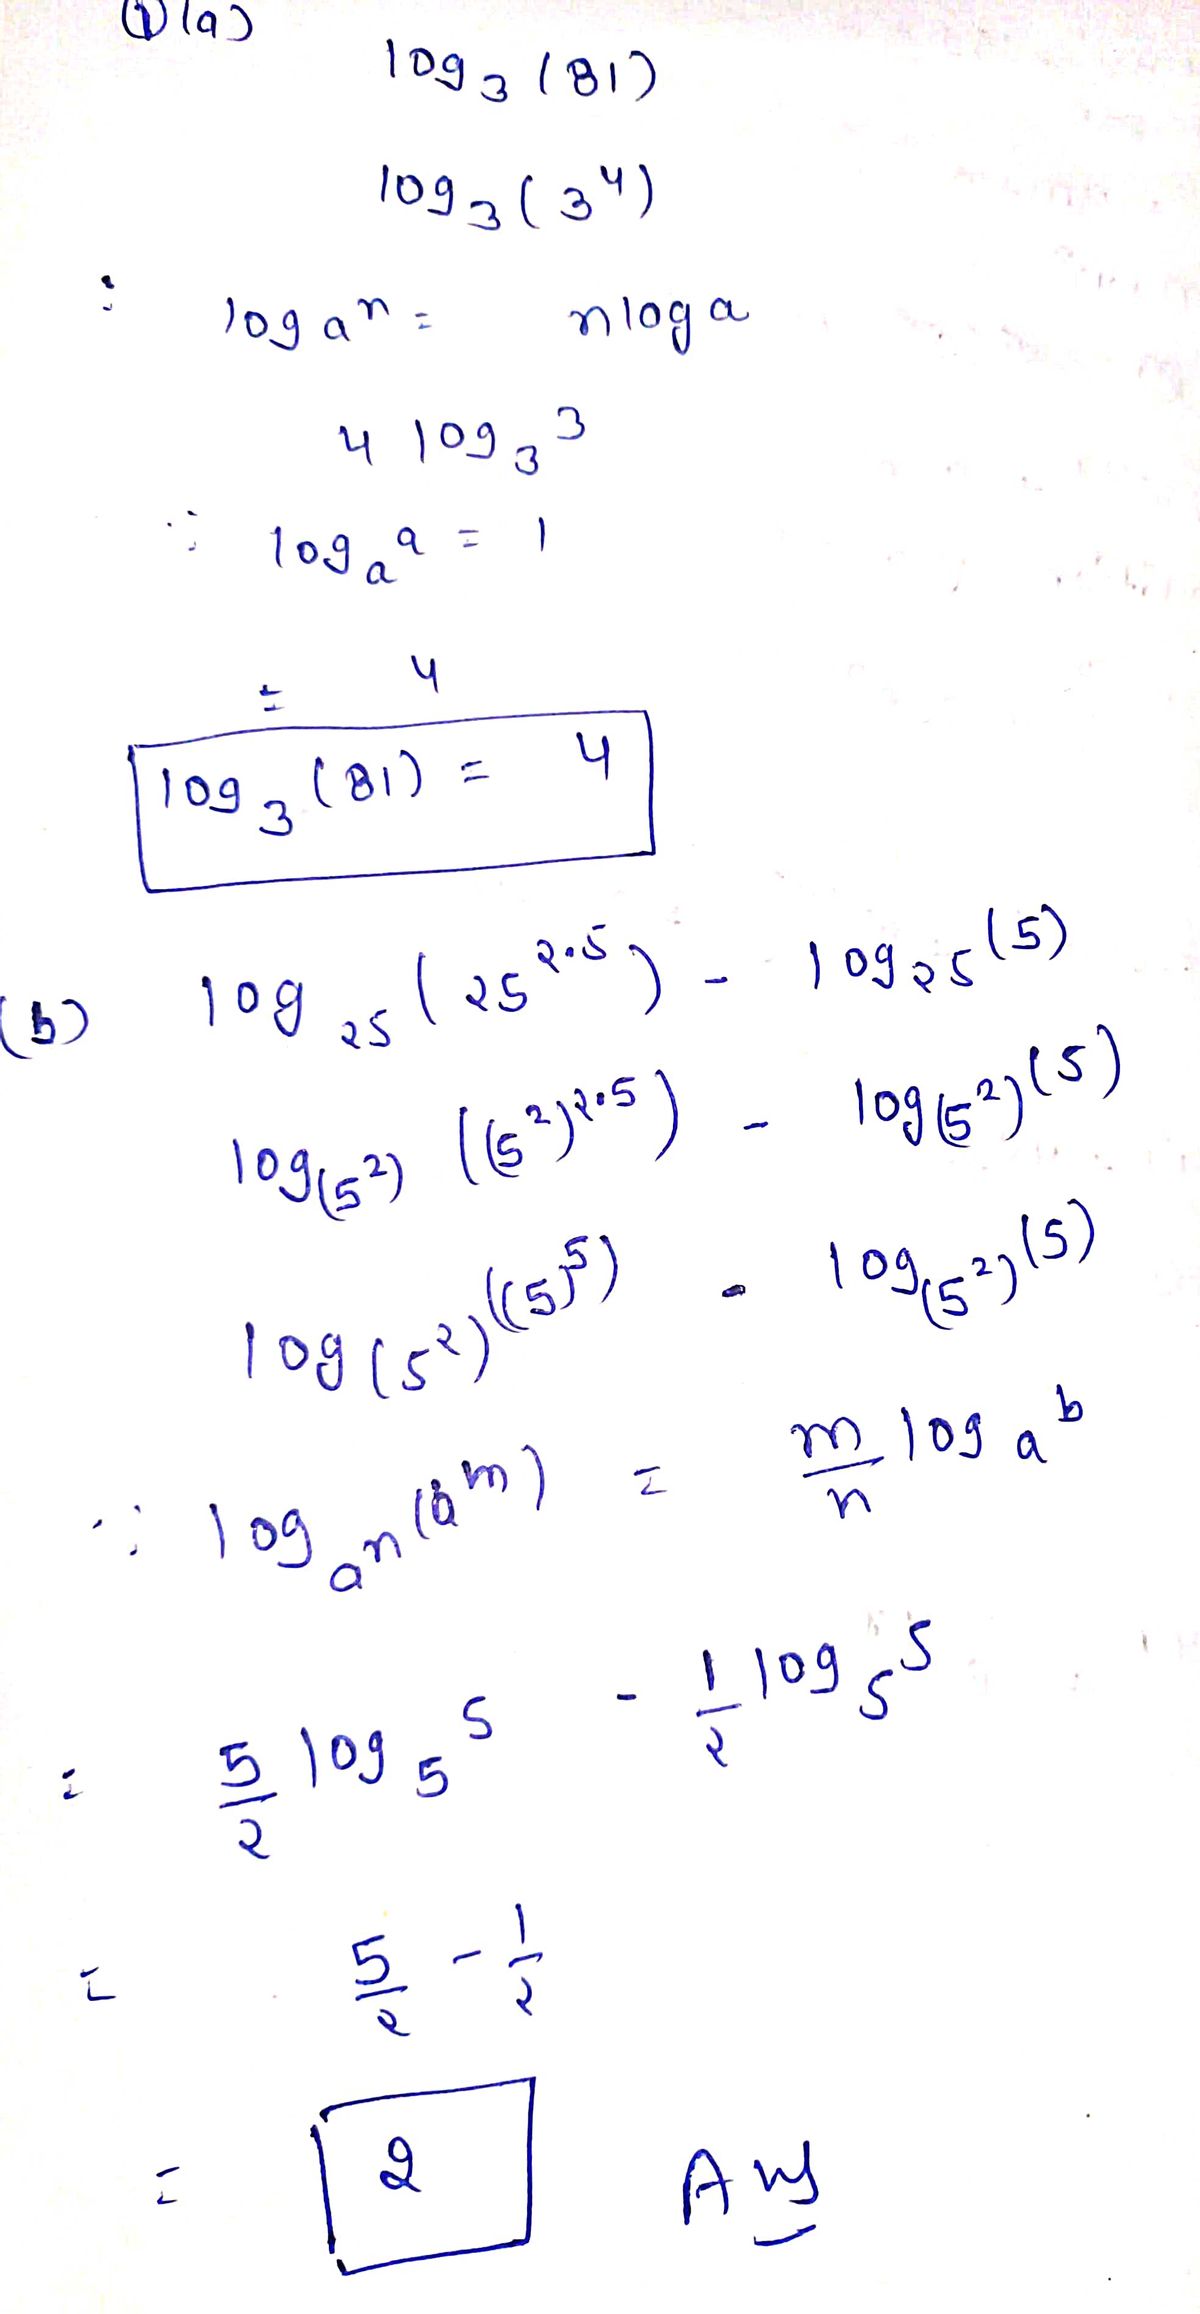 ① (a)
log₃ (81)
log₃ (3⁴)
∵ log aⁿ = n log a
4 log₃ 3
∵ logₐ a = 1
= 4
log₃ (81) = 4
(b) log₂₅ (25^2.5) - log₂₅ (5)
log_(5²) ((5²)^2.5) - log_(5²) (5)
log_(5²) ((5)⁵) - log_(5²) (5)
∵ log_aⁿ (b^m) = m/n logₐ b
= 5/2 log₅ 5 - 1/2 log₅ 5
= 5/2 - 1/2
= 2 Ans